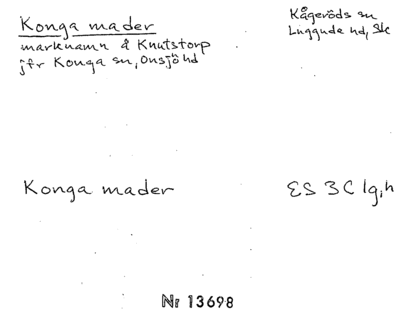 Konga mader
marknamn å Knutstorp
jfr Konga sn, Onsjö hd
Kågeröds sn
Luggude hd, Sk
Konga mader
ES 3C lg,h
Nr 13698